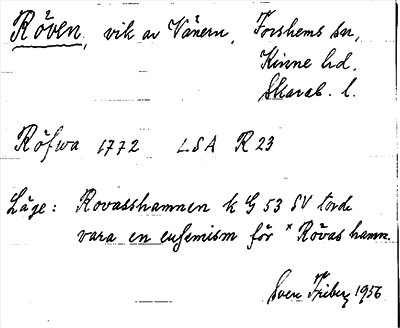 Röven, vik av Vänern, Forshems sn,
Kinne hd.
Skarab. l.
Röfwa 1772 LSA R 23
Läge: Rovasshamnen k G 53 SV torde
vara en eufemism för * Rövas hamn.
Sven Friberg 1956